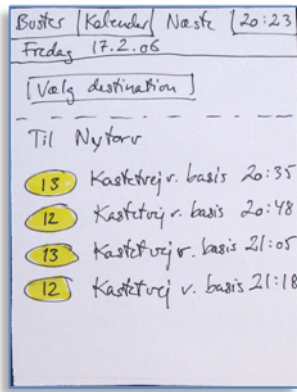 Buster Kalender Næste 20:23
Fredag 17.2.06
[Vælg destination]
Til Nytorv
13 Kastetvej v. basis 20:35
12 Kastetvej v. basis 20:48
13 Kastetvej v. basis 21:05
12 Kastetvej v. basis 21:18